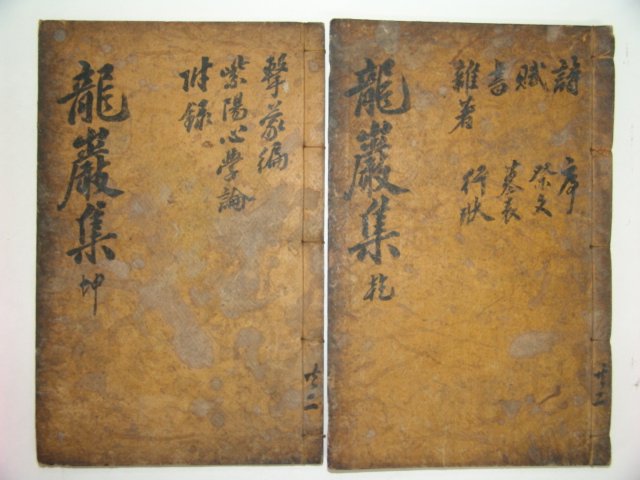 龍巖集 乾
詩
賦
書
雜著
序
祭文
墓表
行狀
共二
龍巖集 坤
擊蒙編
紫陽心學論
附錄
共二